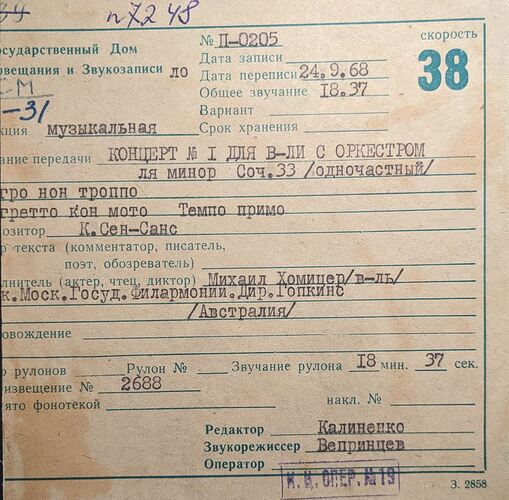 п7248
№ П-0205
скорость
38
осударственный Дом
Дата записи
овещания и Звукозаписи ЛО
Дата переписи 24.9.68
СМ
Общее звучание 18.37
-31
Вариант
кция музыкальная
Срок хранения
ание передачи КОНЦЕРТ № I ДЛЯ В-ЛИ С ОРКЕСТРОМ
ля минор Соч.33 /одночастный/
гро нон троппо
гретто кон мото Темпо примо
озитор К.Сен-Санс
р текста (комментатор, писатель,
поэт, обозреватель)
олнитель (актер, чтец, диктор) Михаил Хомицер/в-ль/
к.Моск.Госуд.Филармонии.Дир.Гопкинс
/Австралия/
ровождение
о рулонов Рулон № Звучание рулона 18 мин. 37 сек.
извещение № 2688
ято фонотекой накл. №
Редактор Калиненко
Звукорежиссер Вепринцев
Оператор
ОПЕР. № 19
З. 2858